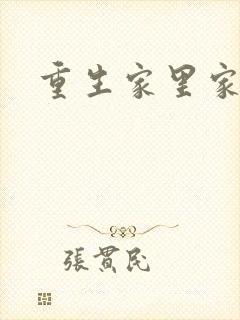 重生家里家
張貫民